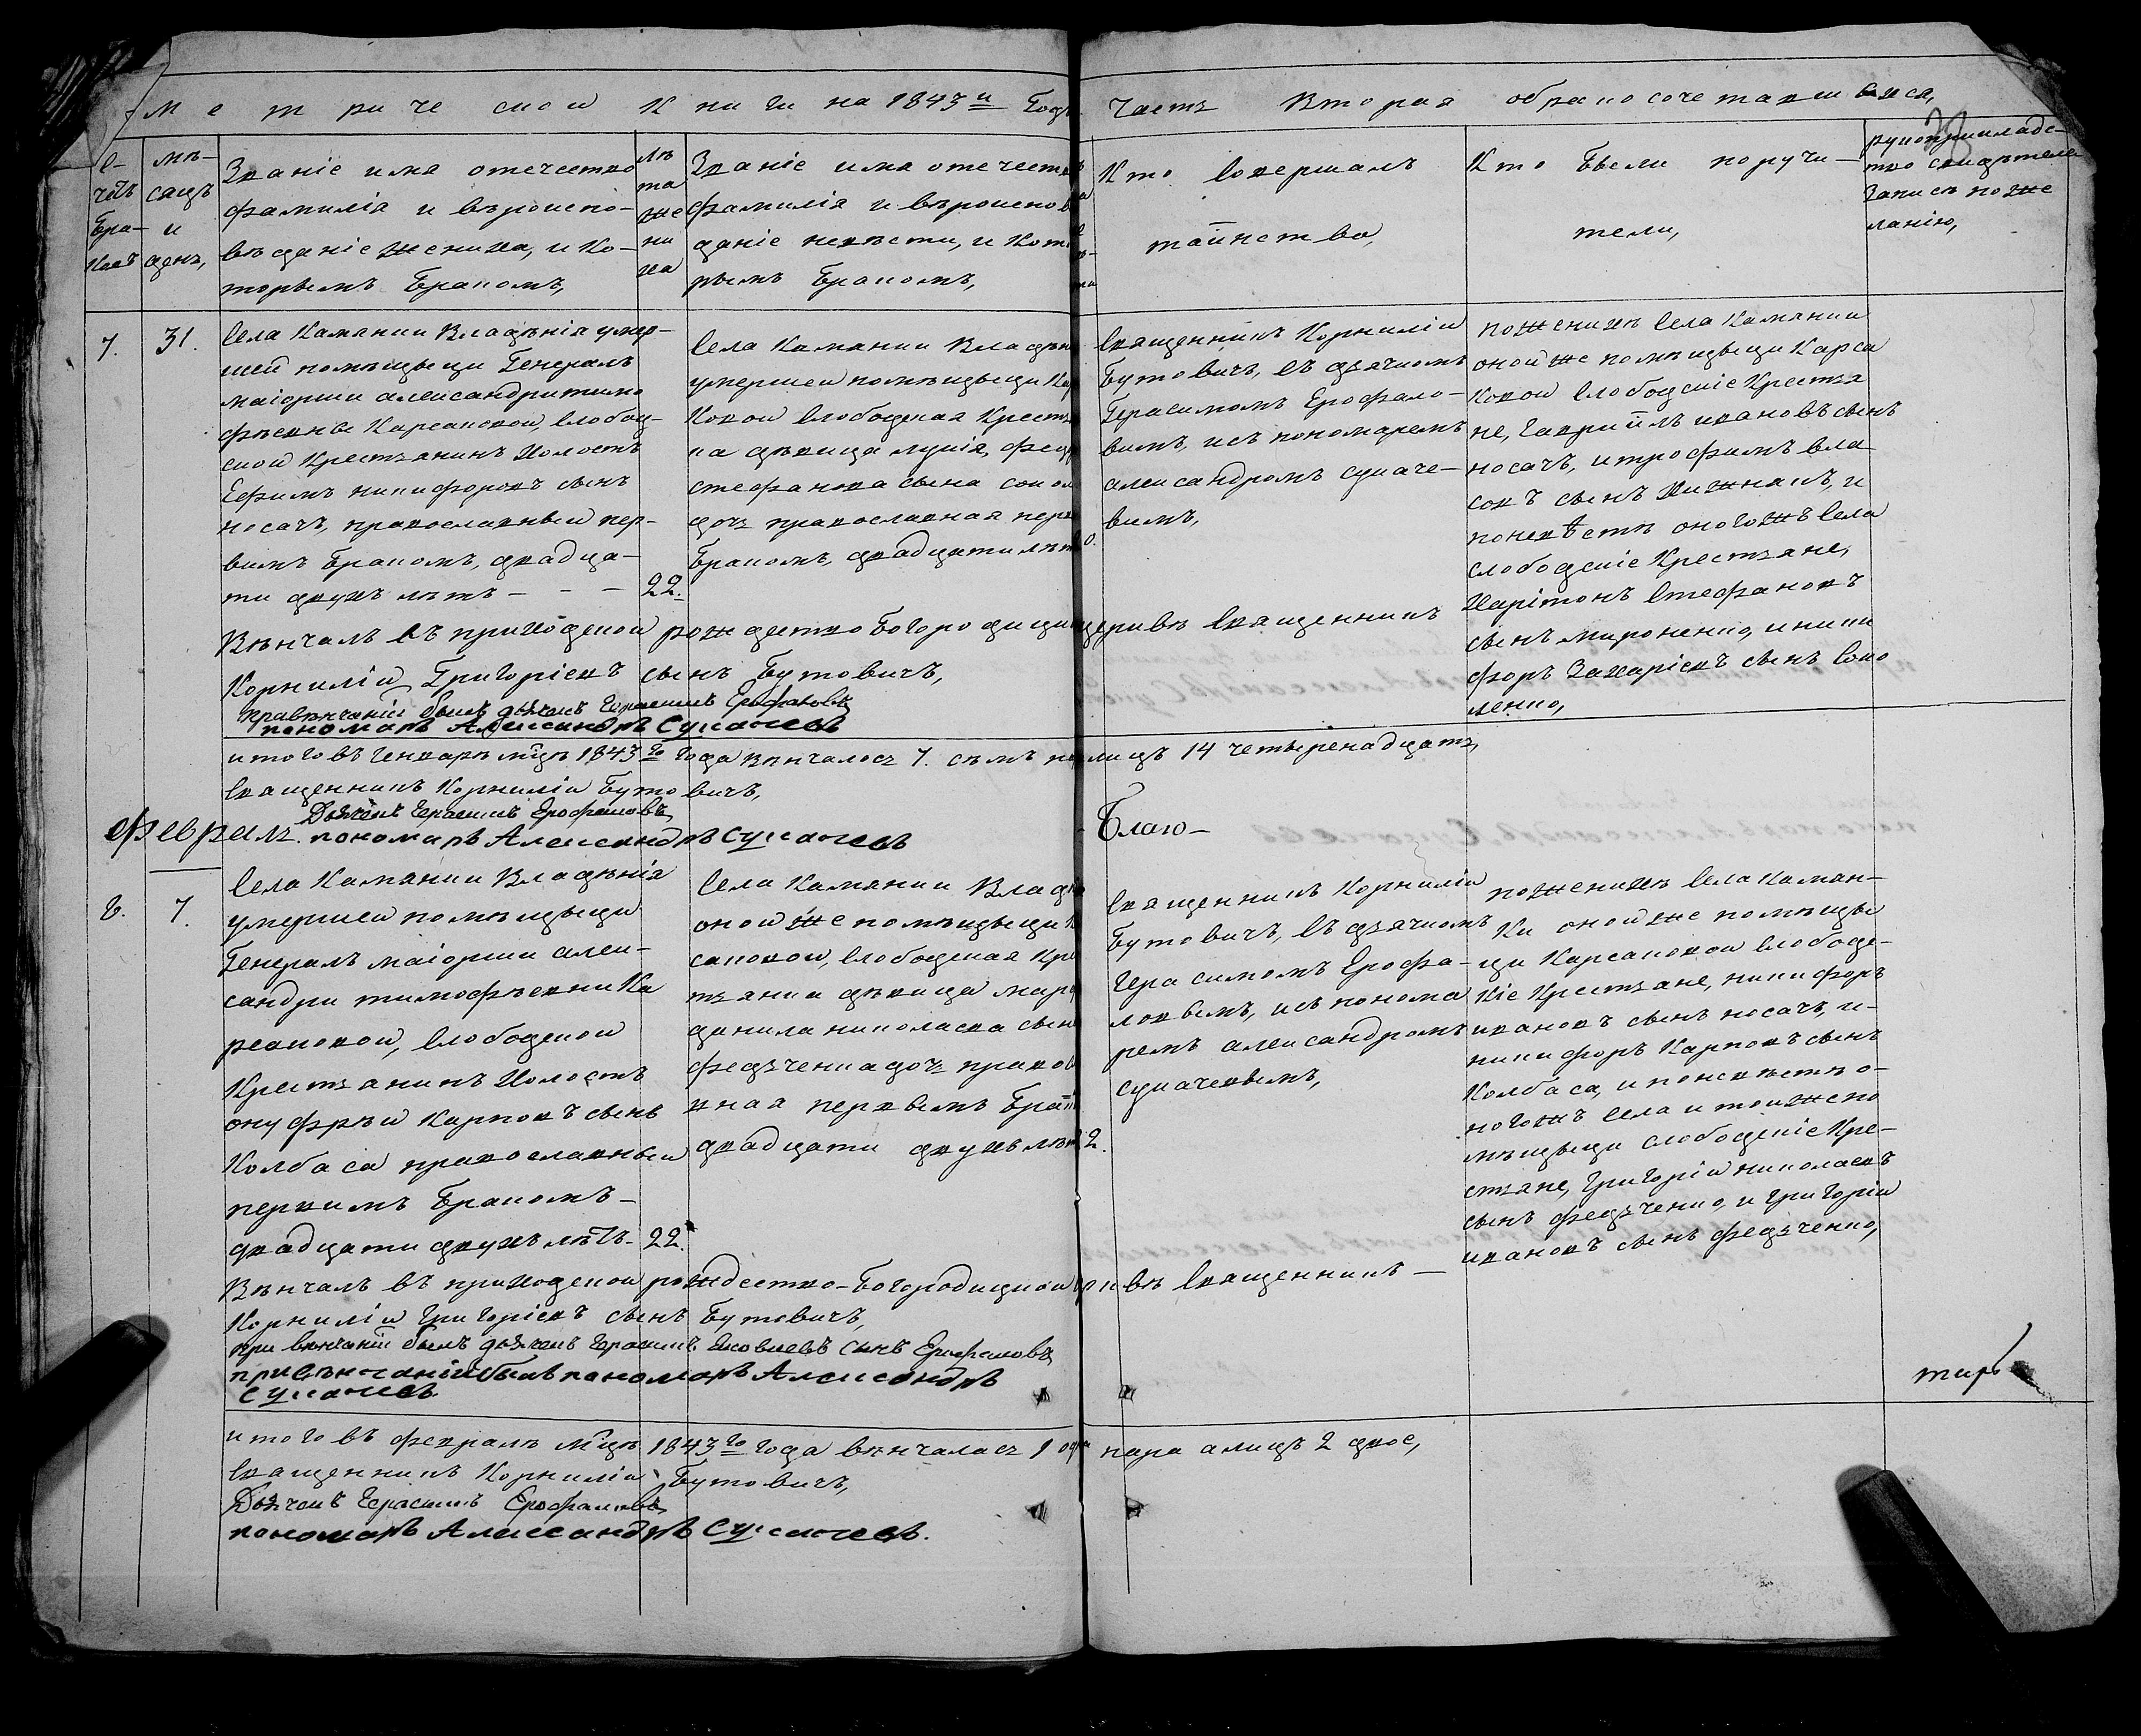 Метрической Книги на 1843й Годъ
Часть Вторая обракосочетавшихся,
счетъ браковъ
мѣсяцъ и день,
Званіе имя отечество
фамилія и вѣроиспо-
вѣданіе жениха, и ко-
торымъ бракомъ,
лѣта жениха
Званіе имя отечест
фамилія и вѣроиспов
даніе невѣсти, и кото
рымъ бракомъ,
Кто совершалъ
таинство,
Кто были поручи-
тели,
рукоприкладс-
тво свидѣтелей
записъ поже
ланію,
7.
31.
Села Каманки Владѣнія умер-
шей помѣщыци Генералъ
маіорши александри тимо
фѣевны Карсаковой, слобод-
ской Крестьянинъ Холостъ
Ефимъ никифоровъ сынъ
носачъ, православный пер-
вимъ бракомъ, двадца-
ти двухъ лѣтъ - - - 22.
Села Каманки Владѣн
умершей помѣщыци Кар
Ковой слободская Кресть
ка дѣвица лукія, Федо
стефанова сына сокол
дочь православная перв
бракомъ, двадцяти лѣт
0.
Священникъ Корнилій
Бутовичъ, съ дьячкомъ
Герасимомъ Ерофало-
вимъ, исъ пономаремъ
александромъ сукаче-
вимъ,
поженихѣ Села Каманки
онойже помѣщыци Карса
ковой слободскіе Крестья
не, Гавриилъ ивановъ сынъ
носачъ, итрофимъ вла
совъ сынъ Книжнакъ, и
поневѣстѣ оногожъ Села
слободскіе Крестьяне,
Харітонъ Стефановъ
сынъ мироненко, иники
форъ Захаріевъ сынъ Соко
ленко,
Вѣнчалъ въ приходской рождество Богородицкой церквѣ Священникъ
Корнилій Григоріевъ сынъ Бутовичъ,
при вѣнчаніи былъ дьячокъ Герасимъ Ерофаловъ
пономарь Александръ Сукачевъ
итого въ Генварѣ мцѣ 1843го года вѣнчалось 7. семъ паръ лицъ 14 четыренадцать,
Священникъ Корнилій Бутовичъ,
Дьячокъ Герасимъ Ерофаловъ
Февраль. пономарь Александръ Сукачевъ
Благо-
8.
7.
Села Каманки Владѣнія
умершей помѣщыци
Генералъ маіорши алек-
сандри тимофѣевни Ка
рсаковой, слободской
Крестьянинъ Холостъ
онуфрѣй Карповъ сынъ
Колбаса православный
первимъ бракомъ-
двадцати двухъ лѣтъ- 22.
Села Каманки Владѣ
онойже помѣщыци К
саковой, слободская Кре
тьянка дѣвица мар
данила николаева сын
федьченка дочь право
вная первымъ брак
двадцати двухъ лѣт
2.
Священникъ Корнилій
Бутовичъ, съ дьячкомъ
Герасимомъ Ерофа-
ловымъ, исъ понома
ремъ александромъ
сукачевымъ,
поженихѣ Села Каман-
ки онойже помѣщы
ци Карсаковой слободс-
кіе Крестьяне, никифоръ
ивановъ сынъ носачъ, и-
никифоръ Карповъ сынъ
Колбаса, и поневѣстѣ о-
ногожъ Села и тойжепо
мѣщыци слободскіе Кре-
стьяне, Григорій николаевъ
сынъ федьченко, и Григорій
ивановъ сынъ федьченко,
Вѣнчалъ въ приходской рождество-Богородицкой церквѣ Священникъ -
Корнилій Григоріевъ сынъ Бутовичъ,
при вѣнчаніи былъ дьячокъ Герасимъ Яковлевъ сынъ Ерофаловъ
при вѣнчаніи былъ пономарь Александръ
Сукачевъ
итого въ февралѣ мцѣ 1843го года вѣнчалась 1 одна пара алицъ 2 двое,
Священникъ Корнилій Бутовичъ,
Дьячокъ Герасимъ Ерофаловъ
пономарь Александръ Сукачевъ.